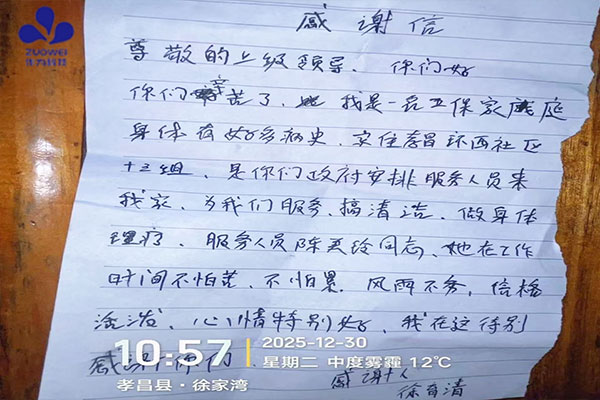 感谢信
ZUOWEI
作为科技
尊敬的上级领导、你们好
你们辛苦了、我是一名五保家庭
身体有好多病史、家住孝昌环西社区
十三组、是你们政府安排服务人员来
我家、为我们服务、搞清洁、做身体
理疗、服务人员陈美玲同志、她在工作
时间不怕苦、不怕累、风雨不务、信格
活泼、心情特别好、我在这待别
感谢你们
10:57
2025-12-30
星期二 中度雾霾 12℃
孝昌县·徐家湾
感谢人
徐育清